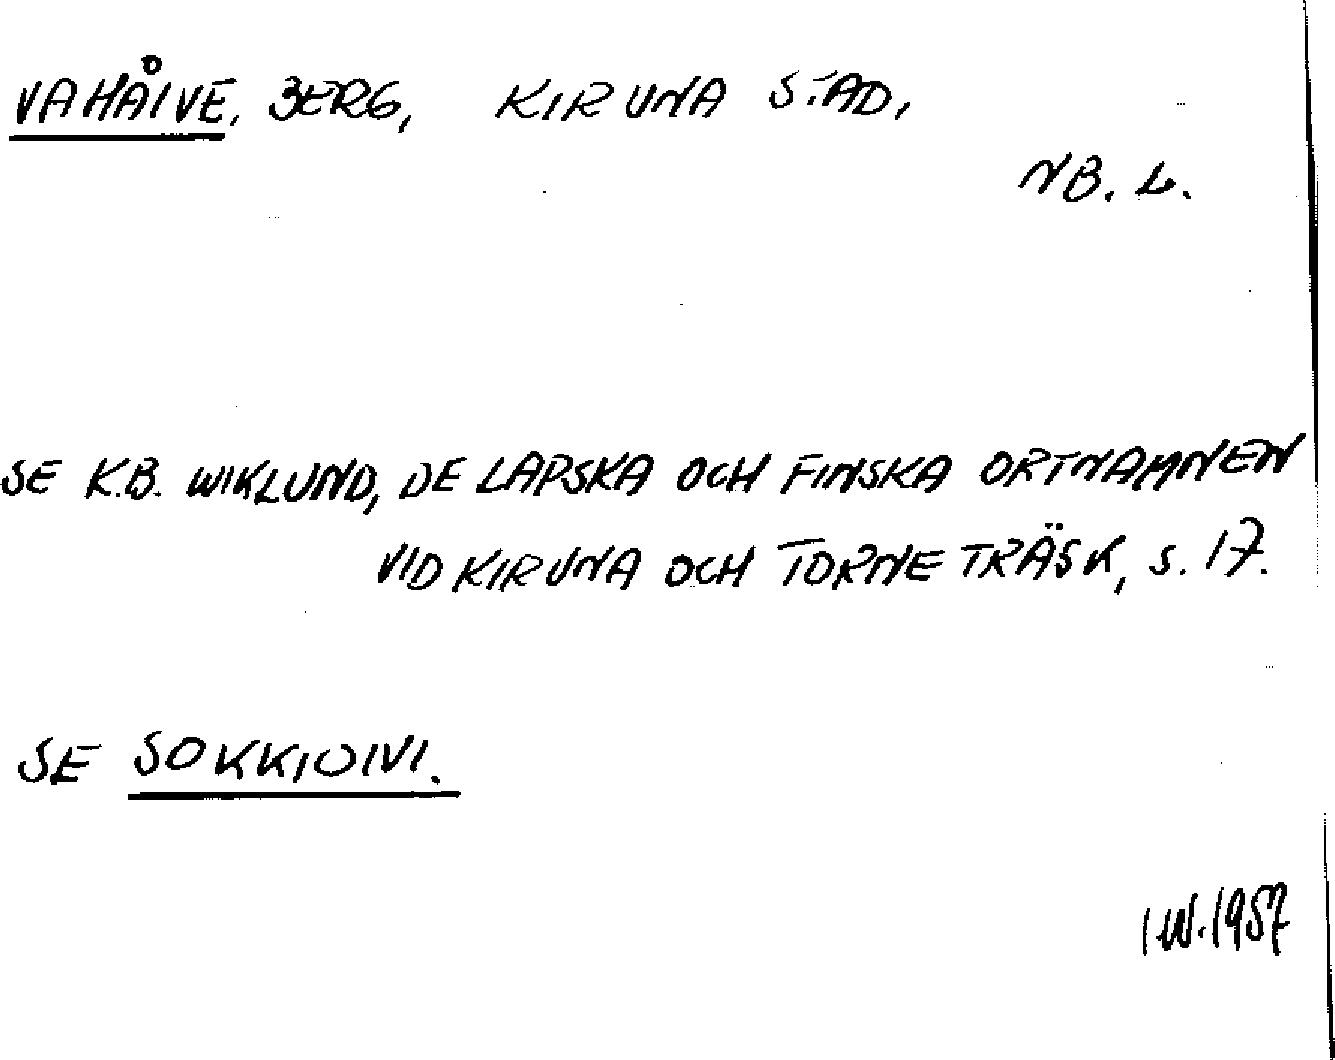 VAHÅIVE, BERG, KIRUNA STAD,
NB. L.
SE K.B. WIKLUND, DE LAPSKA OCH FINSKA ORTNAMNEN
VID KIRUNA OCH TORNE TRÄSK, s. 17.
SE SOKKIOIVI.
IW. 1957